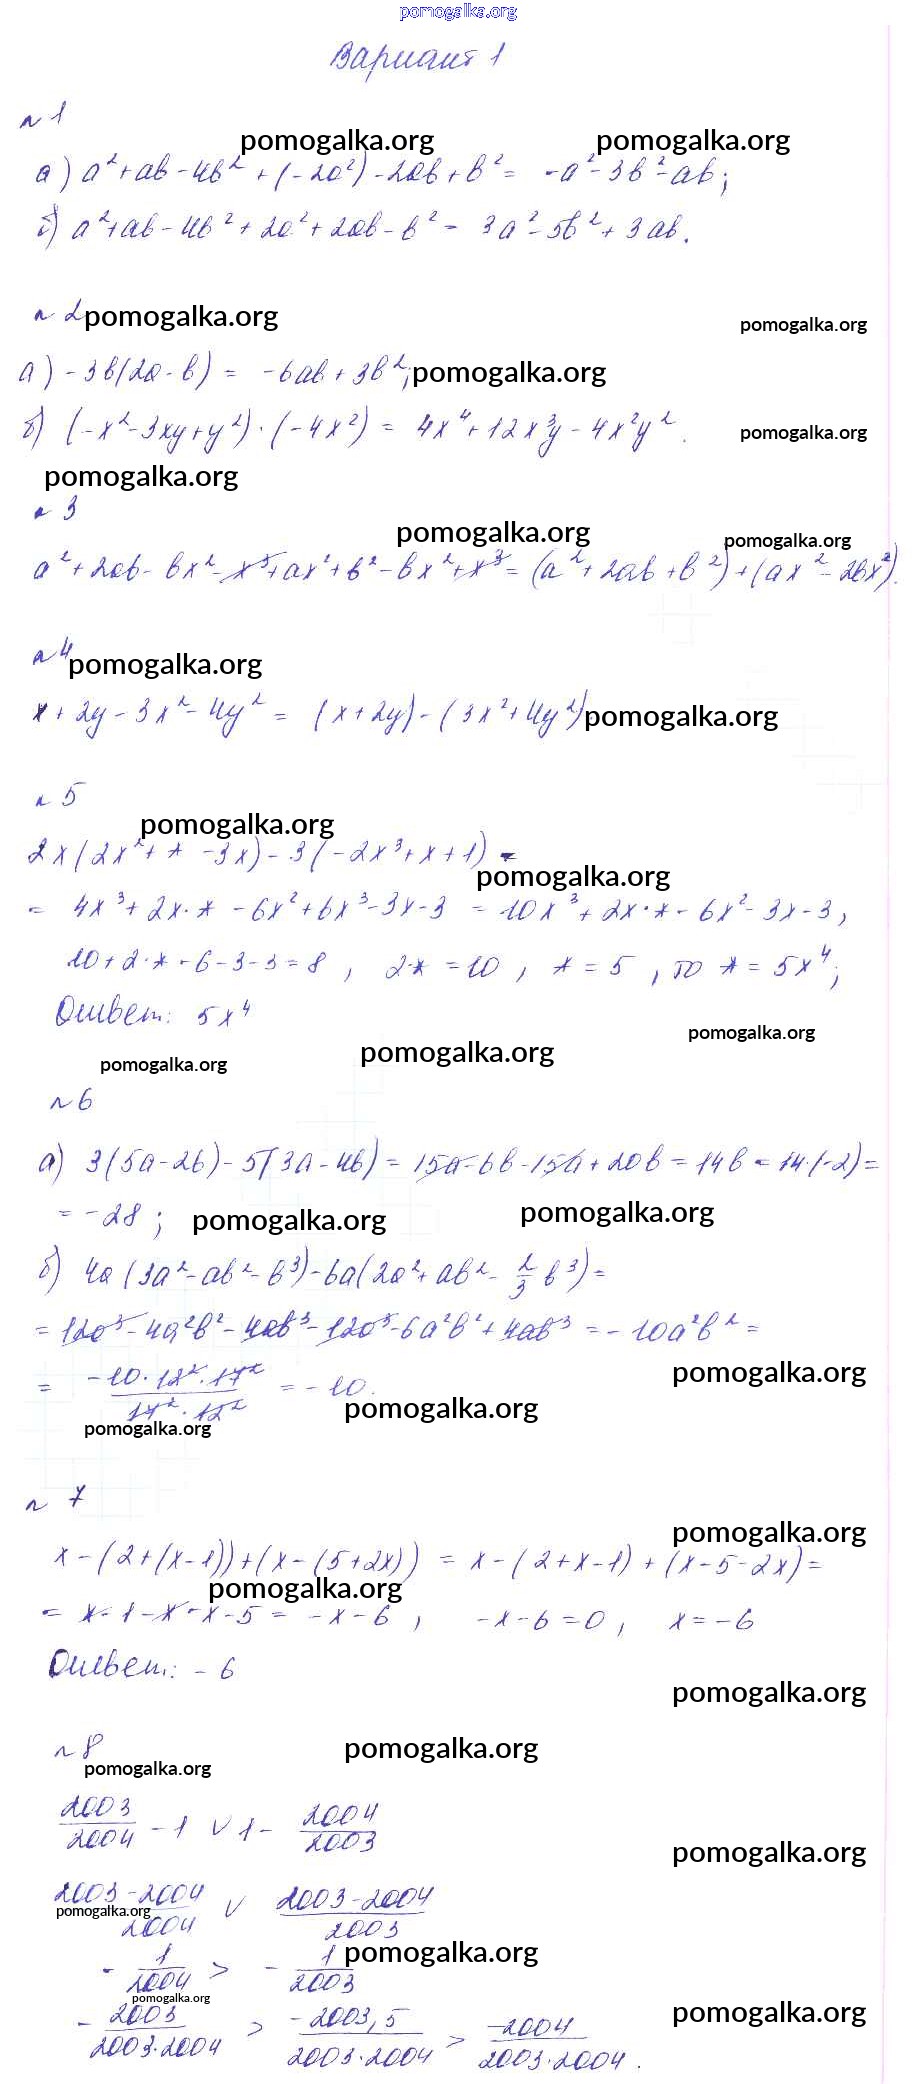 pomogalka.org
Вариант 1
№ 1
pomogalka.org pomogalka.org
а) a² + ab - 4b² + (-2a²) - 2ab + b² = -a² - 3b² - ab;
б) a² + ab - 4b² + 2a² + 2ab - b² = 3a² - 5b² + 3ab.
№ 2 pomogalka.org pomogalka.org
а) -3b(2a - b) = -6ab + 3b²; pomogalka.org
б) (-x² - 3xy + y²) · (-4x²) = 4x⁴ + 12x³y - 4x²y². pomogalka.org
pomogalka.org
№ 3
pomogalka.org pomogalka.org
a² + 2ab - bx² - x³ + ax² + b² - bx² + x³ = (a² + 2ab + b²) + (ax² - 2bx²).
№ 4 pomogalka.org
x + 2y - 3x² - 4y² = (x + 2y) - (3x² + 4y²) pomogalka.org
№ 5
pomogalka.org
2x(2x² + * - 3x) - 3(-2x³ + x + 1) =
pomogalka.org
= 4x³ + 2x·* - 6x² + 6x³ - 3x - 3 = 10x³ + 2x·* - 6x² - 3x - 3,
10 + 2·* - 6 - 3 - 3 = 8, 2·* = 10, * = 5, то * = 5x⁴;
Ответ: 5x⁴
pomogalka.org
pomogalka.org pomogalka.org
№ 6
а) 3(5a - 2b) - 5(3a - 4b) = 15a - 6b - 15a + 20b = 14b = 14·(-2) =
= -28; pomogalka.org pomogalka.org
б) 4a(3a² - ab² - b³) - 6a(2a² + ab² - 2/3 b³) =
= 12a³ - 4a²b² - 4ab³ - 12a³ - 6a²b² + 4ab³ = -10a²b² =
pomogalka.org
= -10·12²·17² / 17²·12² = -10. pomogalka.org
pomogalka.org
№ 7
pomogalka.org
x - (2 + (x - 1)) + (x - (5 + 2x)) = x - (2 + x - 1) + (x - 5 - 2x) =
pomogalka.org
= x - 1 - x - x - 5 = -x - 6, -x - 6 = 0, x = -6
Ответ: -6
pomogalka.org
№ 8
pomogalka.org
pomogalka.org
2003/2004 - 1 ∨ 1 - 2004/2003
pomogalka.org
2003 - 2004 / 2004 ∨ 2003 - 2004 / 2003
pomogalka.org
- 1/2004 > - 1/2003 pomogalka.org
pomogalka.org
pomogalka.org
- 2003 / 2003·2004 > -2003,5 / 2003·2004 > -2004 / 2003·2004.